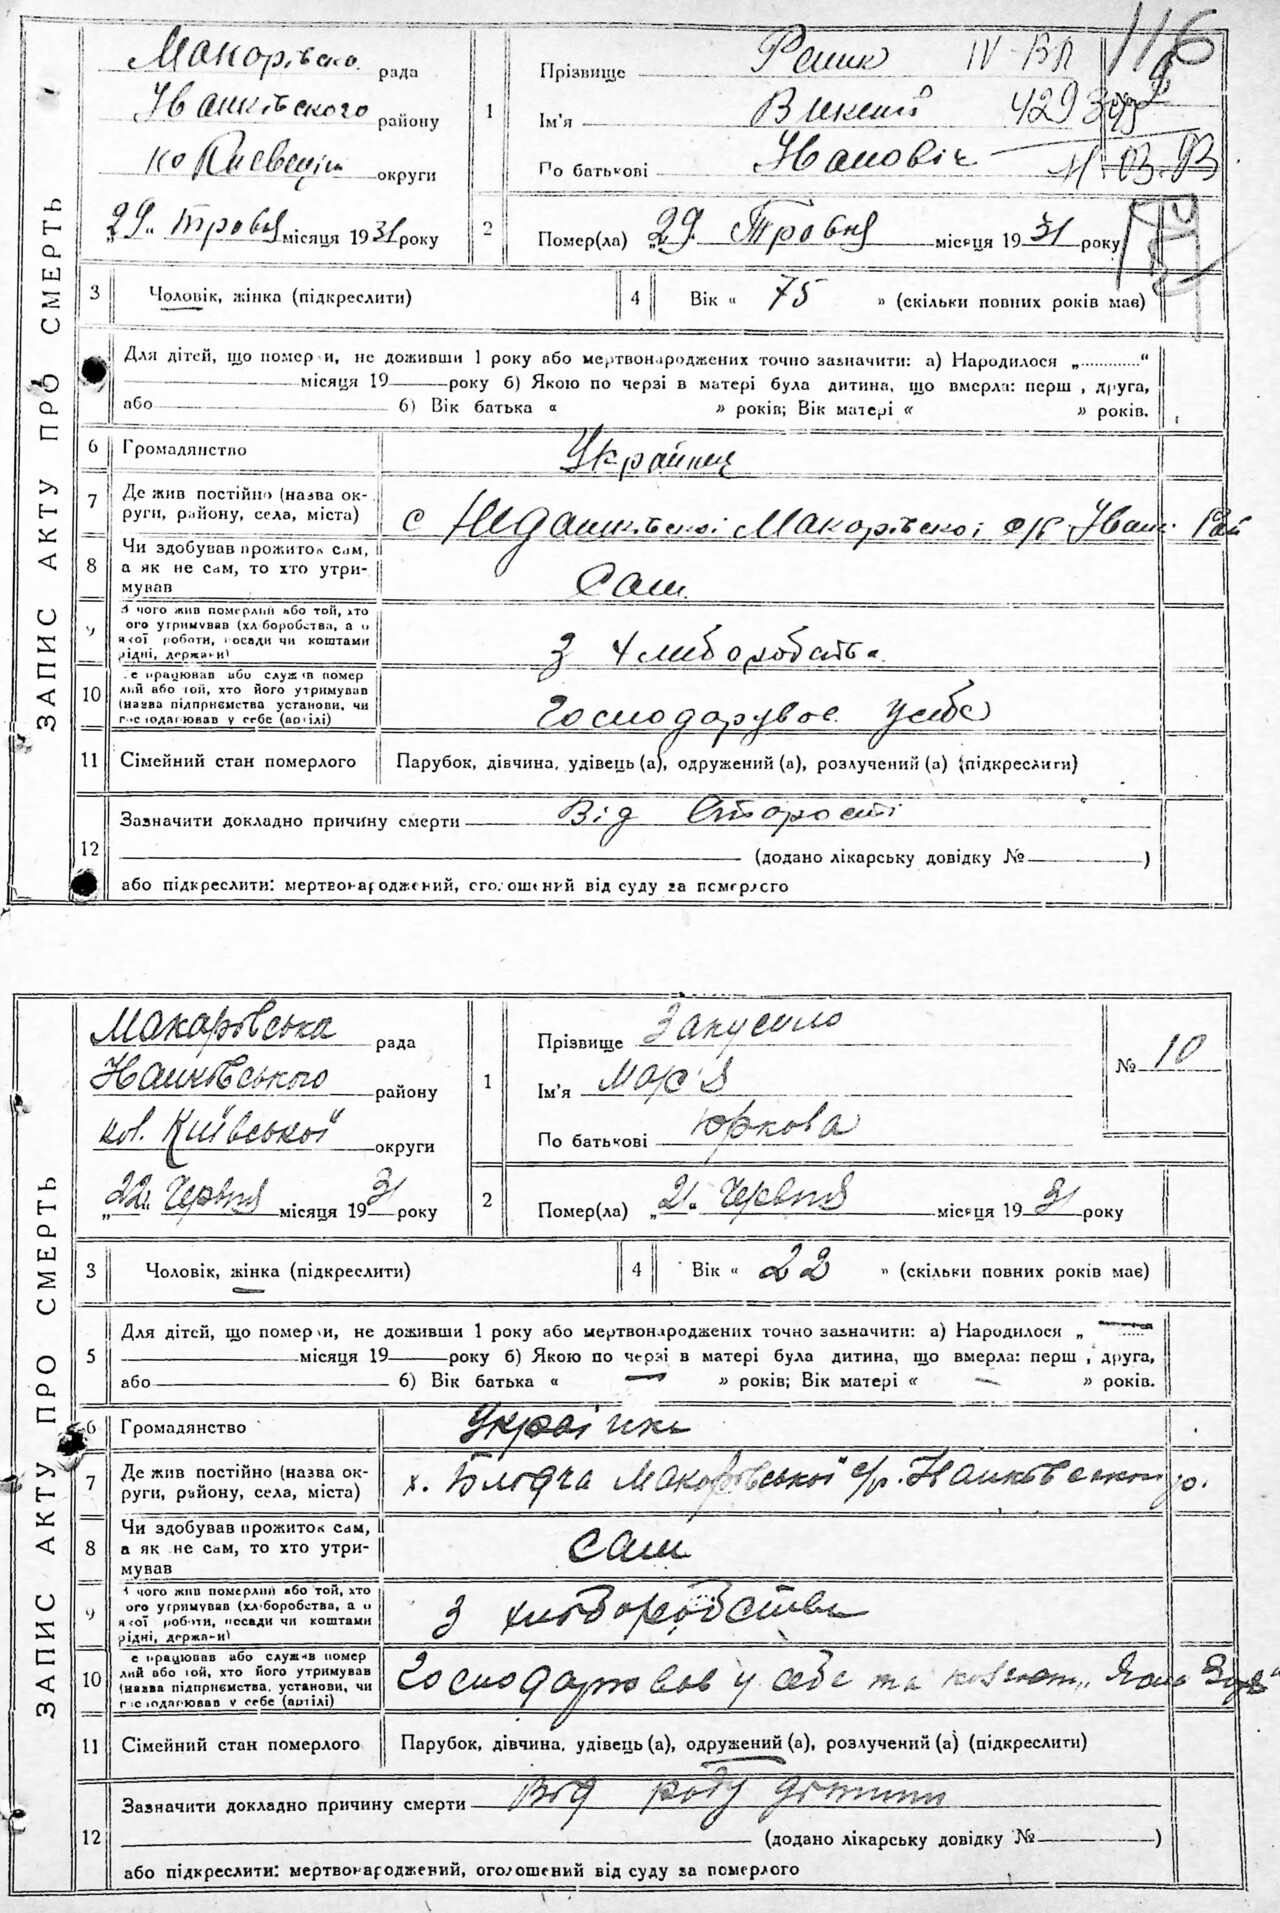 ЗАПИС АКТУ ПРО СМЕРТЬ
116
Макорівска рада
Іванківського району
округи
„29„ Тровня місяця 1931 року
1
Прізвище
Ім'я
По батькові Ивановіч
IV-ВЛ
429
11.03.93
2
Помер(ла) „29„ Тровня місяця 1931 року
3 Чоловік, жінка (підкреслити)
4 Вік « 75 » (скільки повних років має)
Для дітей, що померли, не доживши 1 року або мертвонароджених точно зазначити: а) Народилося „............“
місяця 19 року б) Якою по черзі в матері була дитина, що вмерла: перш , друга,
або б) Вік батька « » років; Вік матері « » років.
6 Громадянство Украйнец
7 Де жив постійно (назва ок-
руги, району, села, міста)
с Макорівскоі с/р Іванк. Рай
8 Чи здобував прожиток сам,
а як не сам, то хто утри-
мував
Сам
9 З чого жив померлий або той, хто
ого утримував (хліборобства, а о
якої роботи, посади чи коштами
рідні, держави)
З Хлиборобства
10 е працював або служив помер
лий або той, хто його утримував
(назва підприємства установи, чи
господарював у себе (артілі)
Господарував усебе
11 Сімейний стан померлого Парубок, дівчина, удівець (а), одружений (а), розлучений (а) (підкреслити)
12 Зазначити докладно причину смерти Від Старости
(додано лікарську довідку № )
або підкреслити: мертвонароджений, оголошений від суду за померлого
ЗАПИС АКТУ ПРО СМЕРТЬ
Макарівська рада
Іванківського району
кол. Київської округи
„22„ Червня місяця 1931 року
1
Прізвище Закусило
Ім'я Мар'я
По батькові Юркова
№ 10
2
Помер(ла) „21„ Червня місяця 1931 року
3 Чоловік, жінка (підкреслити)
4 Вік « 22 » (скільки повних років має)
5 Для дітей, що померли, не доживши 1 року або мертвонароджених точно зазначити: а) Народилося „
місяця 19 року б) Якою по черзі в матері була дитина, що вмерла: перш , друга,
або б) Вік батька « — » років; Вік матері « — » років.
6 Громадянство Украінка
7 Де жив постійно (назва ок-
руги, району, села, міста)
х. Макарівської с/р. Іванківського р.
8 Чи здобував прожиток сам,
а як не сам, то хто утри-
мував
сам
9 З чого жив померлий або той, хто
ого утримував (хліборобства, а о
якої роботи, посади чи коштами
рідні, держави)
З хліборобства
10 е працював або служив помер
лий або той, хто його утримував
(назва підприємства, установи, чи
господарював у себе (артілі)
Господарював у себе та
11 Сімейний стан померлого Парубок, дівчина, удівець (а), одружений (а), розлучений (а) (підкреслити)
12 Зазначити докладно причину смерти Від роду дитини
(додано лікарську довідку № )
або підкреслити: мертвонароджений, оголошений від суду за померлого